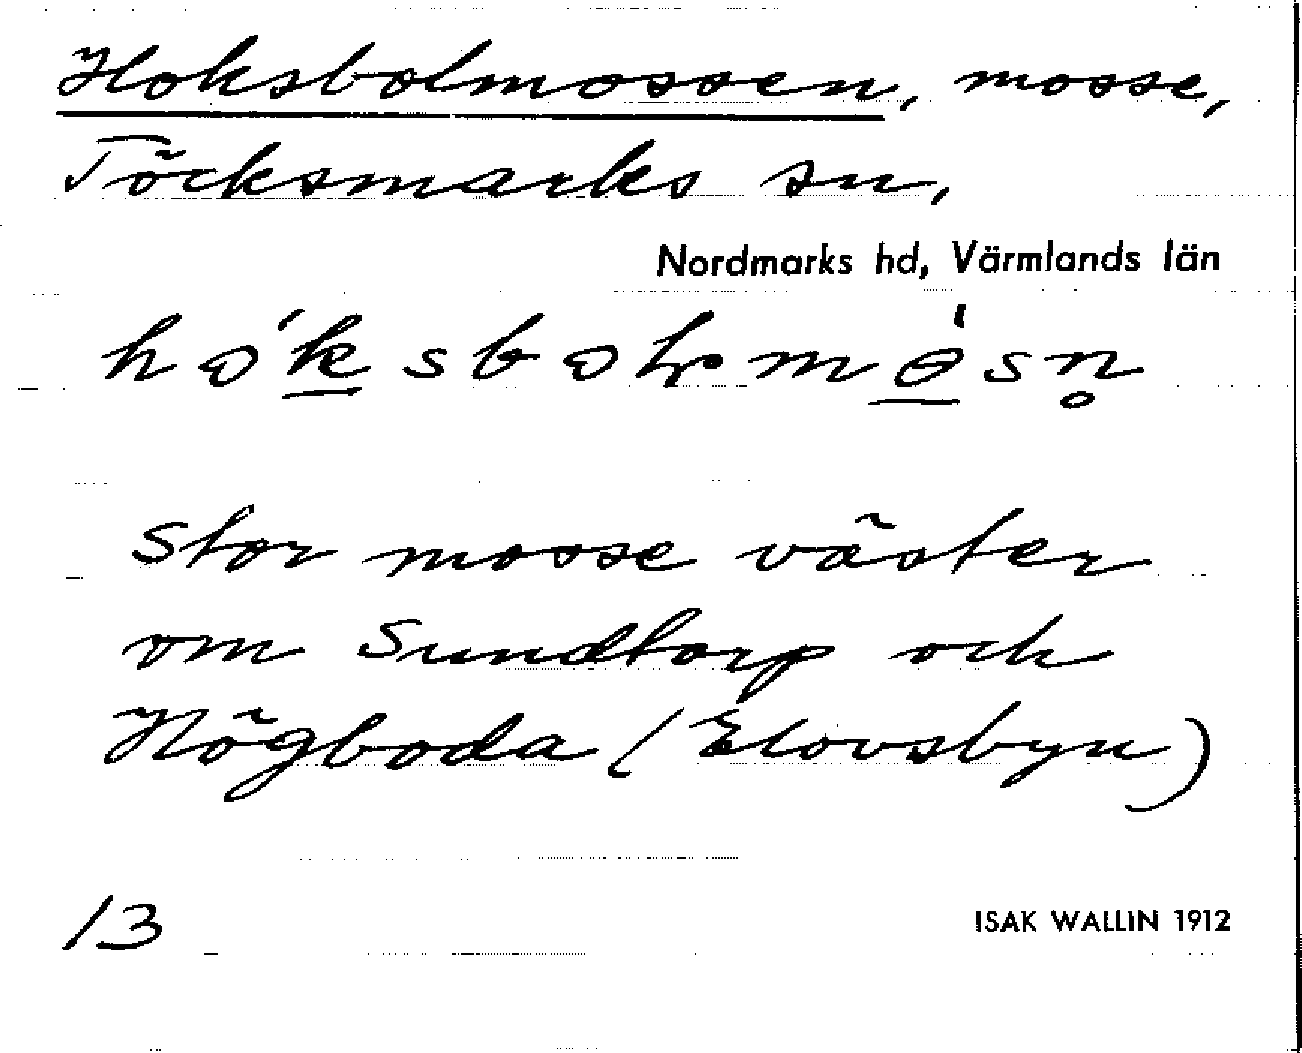 Hoksbolmossen, mosse,
Töcksmarks sn,
Nordmarks hd, Värmlands län
Stor mosse väster
om Sundtorp och
Högboda (Elovsbyn)
13
ISAK WALLIN 1912